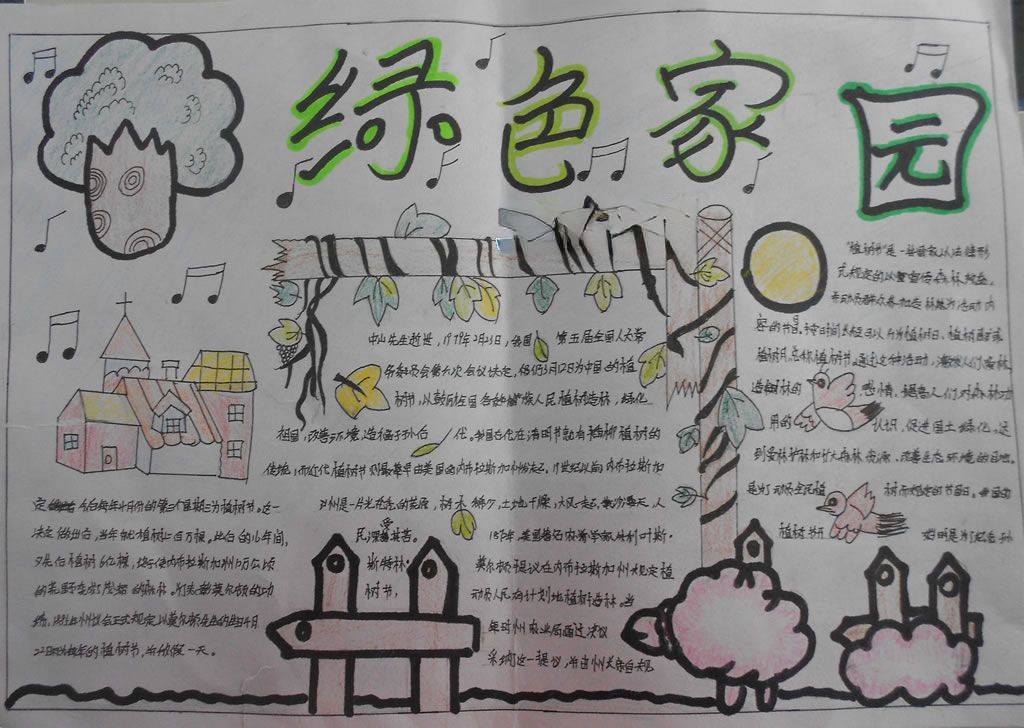 绿色家园
"植树节"是一些国家以法律形
式规定的以宣传森林效益,
并动员群众参加造林为活动内
容的节日。按时间长短可以分为植树日、植树周或
植树月,总称植树节。通过这种活动,激发人们爱林、
造林的感情,提高人们对森林功
用的认识,促进国土绿化,达
到爱林护林和扩大森林资源、改善生态环境的目的。
是为了动员全民植树而规定的节日。中国的
植树节
中山先生逝世,1979年2月23日,我国第五届全国人大常
务委员会第六次会议决定,将3月12日为中国的植
树节,以鼓励全国各族人民植树造林,绿化
祖国,改善环境,造福子孙后代。我国古代在清明节就有插柳植树的
传统,而近代植树节则最早由美国的内布拉斯加州发起。19世纪以前,内布拉斯加
州是一片光秃秃的荒原,树木稀少,土地干燥,大风一起,黄沙满天,人
民深受其苦。1872年,美国著名农学家朱利叶斯·
斯特林·莫尔顿提议在内布拉斯加州规定植
树节,动员人民有计划地植树造林。当
年州农业局通过决议
采纳这一提议,并由州长亲自规
定今后每年4月份的第三个星期三为植树节。这一
决定做出后,当年就植树上百万棵。此后的16年间,
又先后植树6亿棵,终于使内布拉斯加州10万公顷
的荒野变成了茂密的森林。为表彰莫尔顿的功
绩,1885年州议会正式规定以莫尔顿先生的生日4月
22日为每年的植树节,并放假一天。